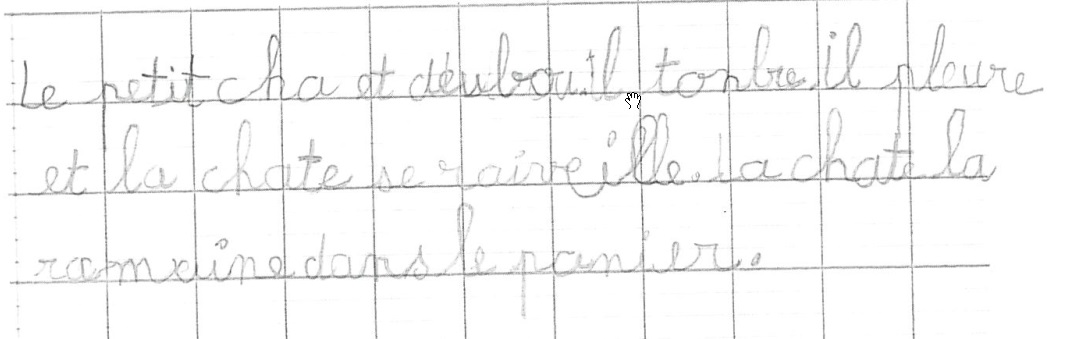 Le petit cha et déubou.il tonbre.il pleure
et la chate se raiveille.La chate la
ramaine dans le panier.